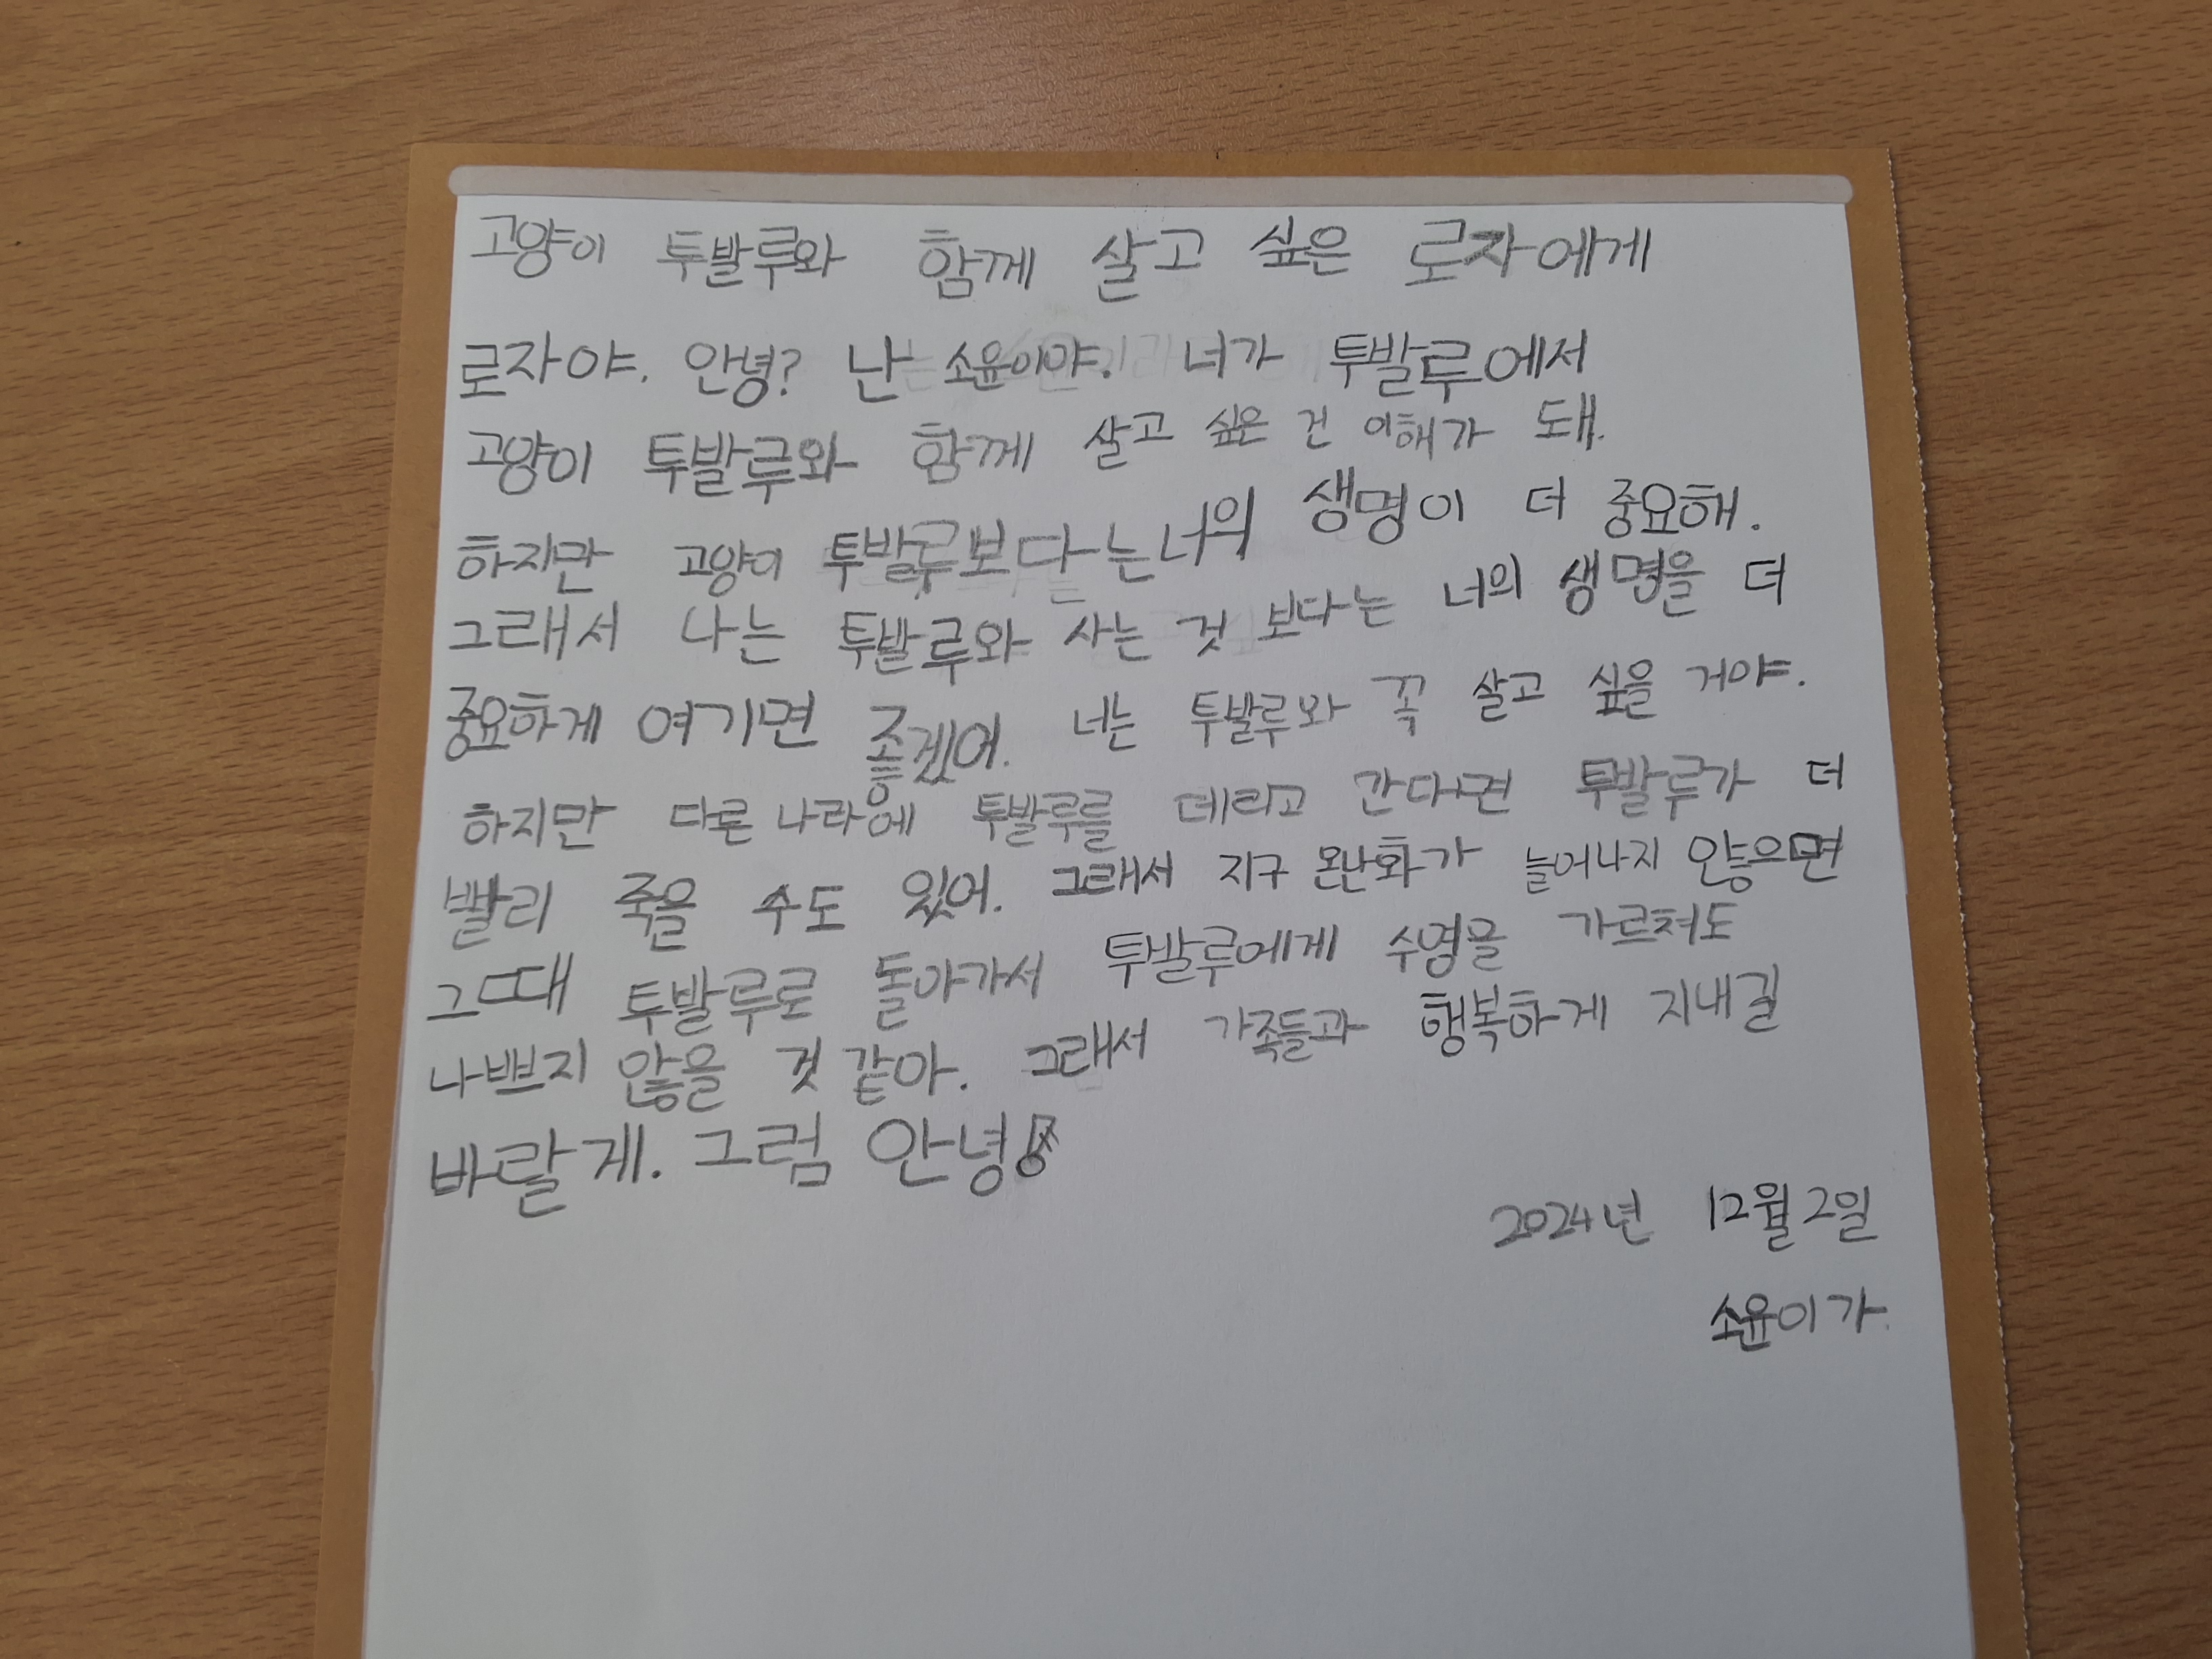 고양이 투발루와 함께 살고 싶은 로자에게
로자야. 안녕? 난 소윤이야. 너가 투발루에서
고양이 투발루와 함께 살고 싶은 건 이해가 돼.
하지만 고양이 투발루보다는 너의 생명이 더 중요해.
그래서 나는 투발루와 사는 것 보다는 너의 생명을 더
중요하게 여기면 좋겠어. 너는 투발루와 꼭 살고 싶을 거야.
하지만 다른 나라에 투발루를 데리고 간다면 투발루가 더
빨리 죽을 수도 있어. 그래서 지구 온난화가 늘어나지 않으면
그때 투발루로 돌아가서 투발루에게 수영을 가르쳐도
나쁘지 않을 것 같아. 그래서 가족들과 행복하게 지내길
바랄게. 그럼 안녕
2024년 12월 2일
소윤이가